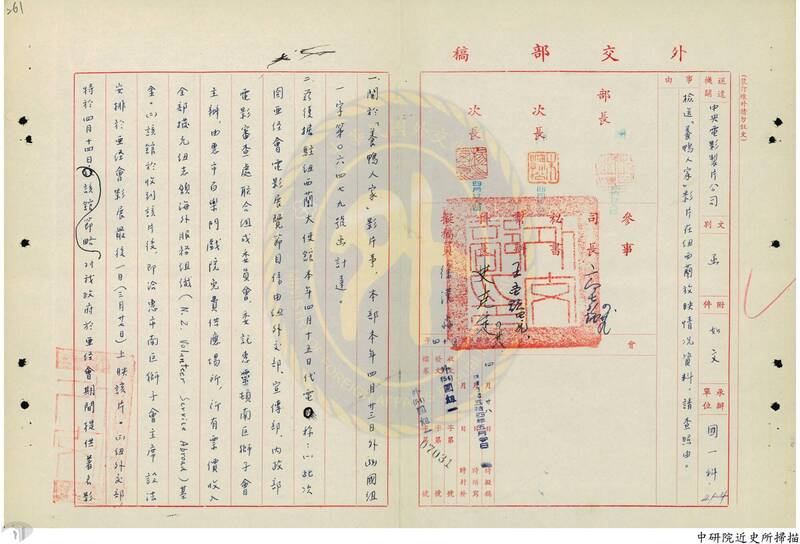 261
外交部稿
(裝訂線外請勿註文)
送達機關
中央電影製片公司
文別
函
附件
如文
承辦單位
國一科
事由
檢送「養鴨人家」影片在紐西蘭放映情況資料，請查照由。
部長
次長
次長
參事
司長
秘書
幫辦
科長
擬稿員
會
07031
一、關於「養鴨人家」影片事，本部本年四月廿三日外(54)國組
一字第〇六四七九號函計達。
二、茲後據駐紐西蘭大使館本年四月十五日代電稱：(一)此次
閱亞經會電影展覽節目係由紐外交部、宣傳部、內政部
電影審查處聯合組成委員會，委託惠靈頓南區獅子會
主辦，由惠市百樂門戲院免費供應場所，所有票價收入
全部撥充紐志願海外服務組織(N.Z. Volunteer Service Abroad)基
金。(二)該館於收到該片後，即洽惠市南區獅子會主席設法
安排於亞經會影展最後一日(三月廿五日)上映該片。(三)紐外交部
特於四月十四日以該館節略對我政府於亞經會期間提供著名影
中研院近史所掃描